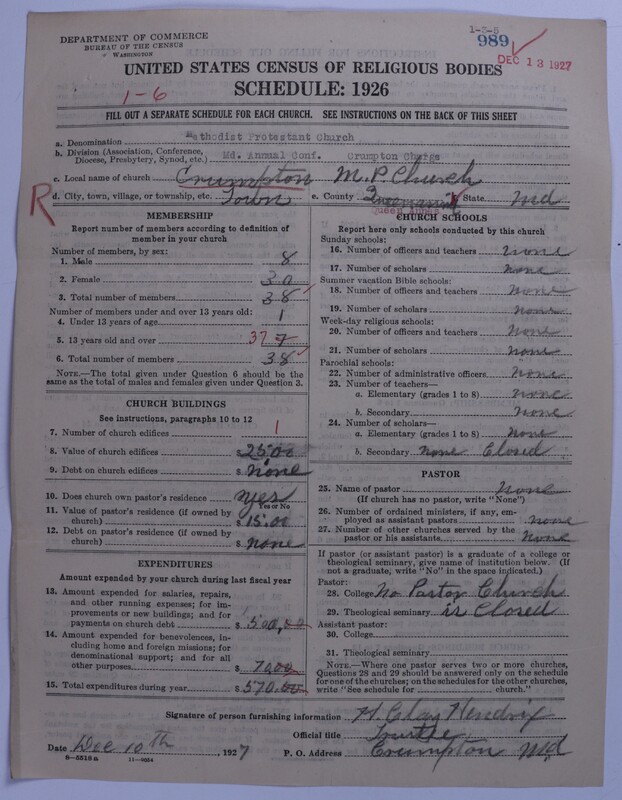 DEPARTMENT OF COMMERCE
BUREAU OF THE CENSUS
WASHINGTON
1-3-6
989
DEC 13 1927
UNITED STATES CENSUS OF RELIGIOUS BODIES
SCHEDULE: 1926
1-6
FILL OUT A SEPARATE SCHEDULE FOR EACH CHURCH. SEE INSTRUCTIONS ON THE BACK OF THIS SHEET
a. Denomination Methodist Protestant Church
b. Division (Association, Conference, Diocese, Presbytery, Synod, etc.) Md. Annual Conf. Crumpton Charge
c. Local name of church Crumpton M.P. Church
R
d. City, town, village, or township, etc. Town e. County Queen Anne State Md
MEMBERSHIP
Report number of members according to definition of member in your church
Number of members, by sex:
1. Male 8
2. Female 30
3. Total number of members 38
Number of members under and over 13 years old:
4. Under 13 years of age 1
5. 13 years old and over 37 7
6. Total number of members 38
NOTE.—The total given under Question 6 should be the same as the total of males and females given under Question 3.
CHURCH BUILDINGS
See instructions, paragraphs 10 to 12
7. Number of church edifices 1
8. Value of church edifices $ 2500
9. Debt on church edifices $ none
10. Does church own pastor's residence yes
Yes or No
11. Value of pastor's residence (if owned by church) $ 1500
12. Debt on pastor's residence (if owned by church) $ none
EXPENDITURES
Amount expended by your church during last fiscal year
13. Amount expended for salaries, repairs, and other running expenses; for improvements or new buildings; and for payments on church debt $ 500.00
14. Amount expended for benevolences, including home and foreign missions; for denominational support; and for all other purposes $ 70.00
15. Total expenditures during year $ 570.00
CHURCH SCHOOLS
Report here only schools conducted by this church
Sunday schools:
16. Number of officers and teachers none
17. Number of scholars none
Summer vacation Bible schools:
18. Number of officers and teachers none
19. Number of scholars none
Week-day religious schools:
20. Number of officers and teachers none
21. Number of scholars none
Parochial schools:
22. Number of administrative officers none
23. Number of teachers—
a. Elementary (grades 1 to 8) none
b. Secondary none
24. Number of scholars—
a. Elementary (grades 1 to 8) none
b. Secondary none Closed
PASTOR
25. Name of pastor none
(If church has no pastor, write "None")
26. Number of ordained ministers, if any, employed as assistant pastors none
27. Number of other churches served by the pastor or his assistants none
If pastor (or assistant pastor) is a graduate of a college or theological seminary, give name of institution below. (If not a graduate, write "No" in the space indicated.)
Pastor:
28. College No Pastor Church
29. Theological seminary is Closed
Assistant pastor:
30. College
31. Theological seminary
NOTE.—Where one pastor serves two or more churches, Questions 28 and 29 should be answered only on the schedule for one of the churches; on the schedules for the other churches, write "See schedule for church."
Signature of person furnishing information H. Clay Hendrix
Official title Trustee
Date Dec 10th 1927 P. O. Address Crumpton Md
8-5518a 11-9084